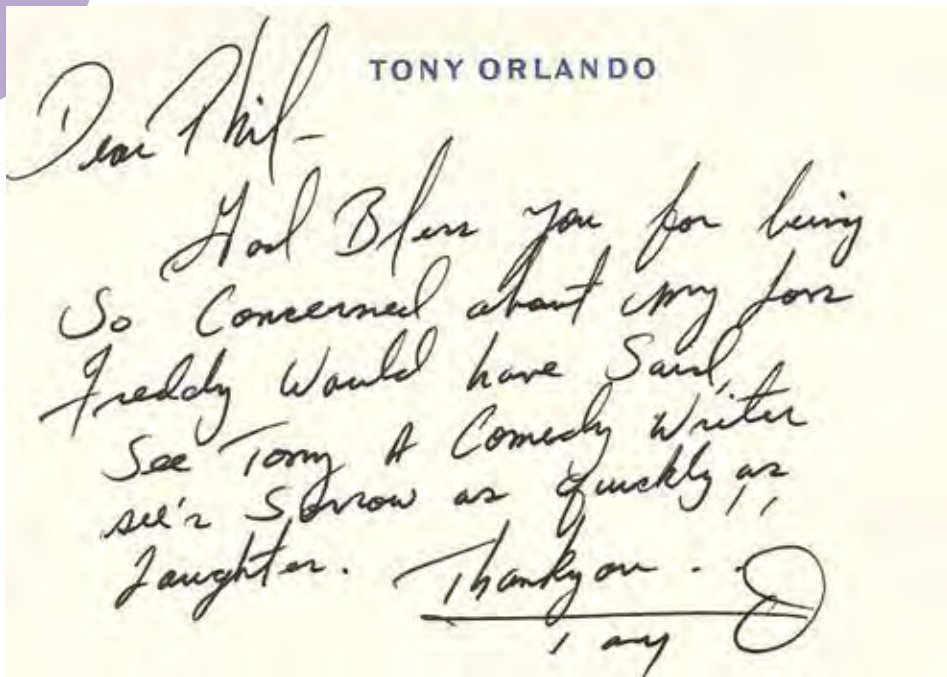 TONY ORLANDO
Dear Phil-
God Bless you for being
So Concerned about my loss
Freddy Would have Said,
See Tony A Comedy Writer
see's Sorrow as quickly as
Laughter. Thankyou . .
Tony